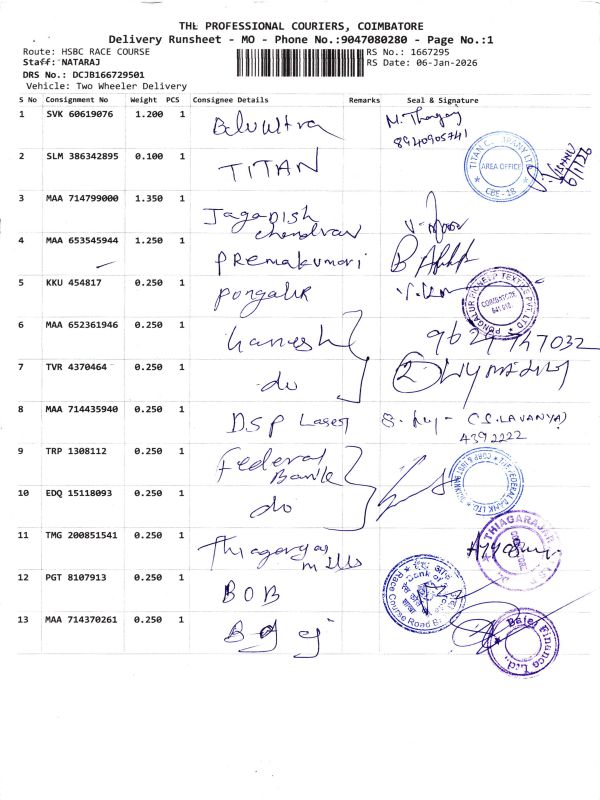 THE PROFESSIONAL COURIERS, COIMBATORE
Delivery Runsheet - MO - Phone No.:9047080280 - Page No.:1
Route: HSBC RACE COURSE
RS No.: 1667295
Staff: NATARAJ
RS Date: 06-Jan-2026
DRS No.: DCJB166729501
Vehicle: Two Wheeler Delivery
S No Consignment No Weight PCS Consignee Details Remarks Seal & Signature
1 SVK 60619076 1.200 1
8940905741
2 SLM 386342895 0.100 1 TITAN
TITAN COMPANY LTD
AREA OFFICE
CBE-18
3 MAA 714799000 1.350 1 Jagadish
chandran
4 MAA 653545944 1.250 1 Premakumari
5 KKU 454817 0.250 1 Pongalur
PONGALUR PIONEER TEXTILE PVT. LTD
COIMBATORE
6 MAA 652361946 0.250 1
7 TVR 4370464 0.250 1 do
8 MAA 714435940 0.250 1 DSP Laser (S. LAVANYA)
4392222
9 TRP 1308112 0.250 1 Federal
Bank
THE FEDERAL BANK LTD.
10 EDQ 15118093 0.250 1 do
11 TMG 200851541 0.250 1 Thiagarajar
mills
THIAGARAJAR
12 PGT 8107913 0.250 1 BOB
Bank of
Race Course Road
13 MAA 714370261 0.250 1 Bajaj
Bajaj Finance Ltd.